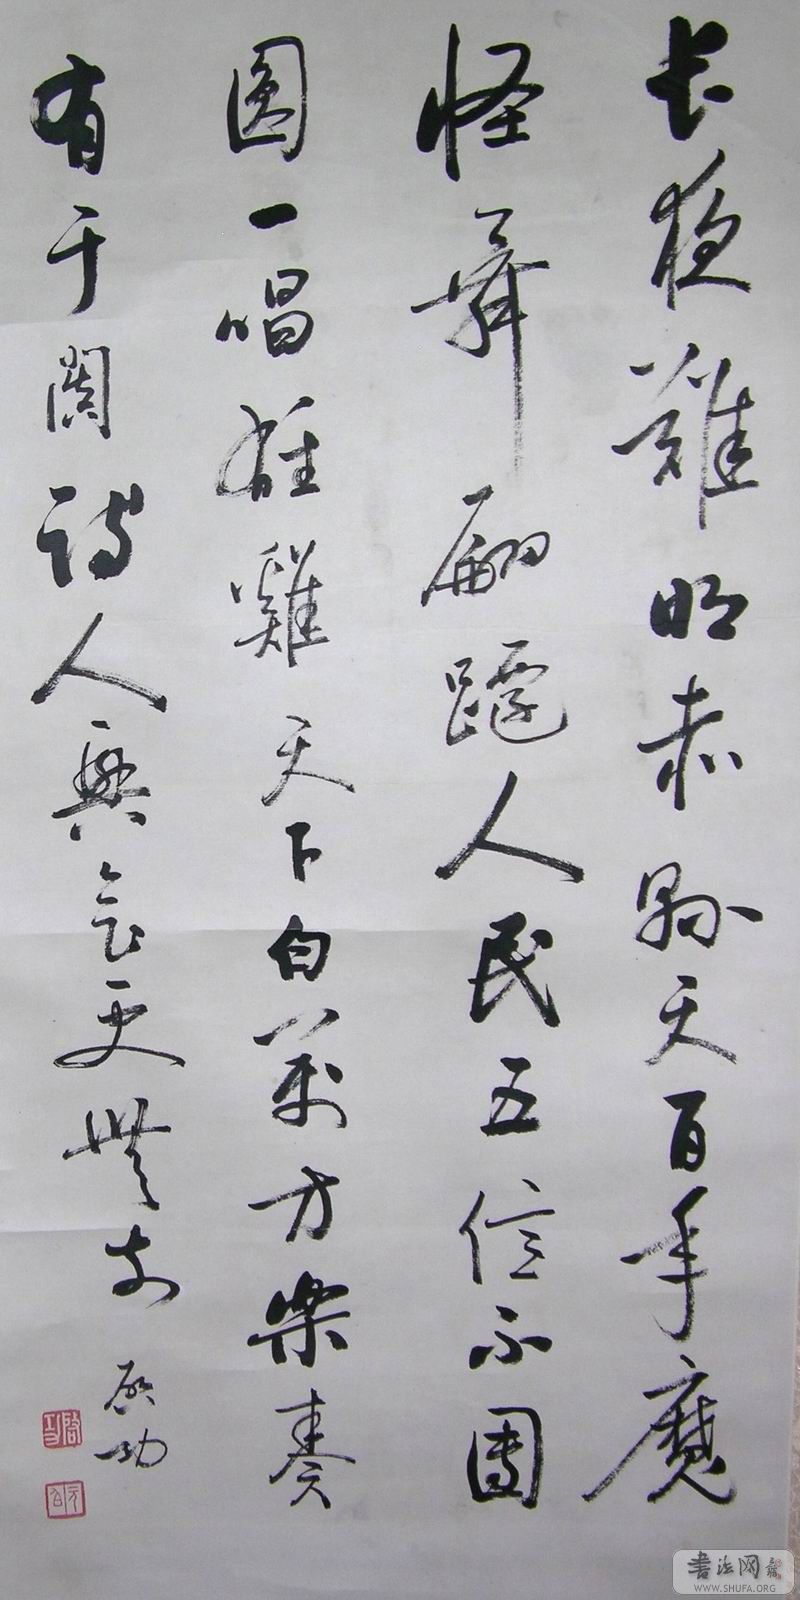 長夜難明赤縣天百年魔
怪舞翩躚人民五億不團
圓一唱雄雞天下白萬方樂奏
有于闐詩人興會更無前
啟功
書法网
WWW.SHUFA.ORG